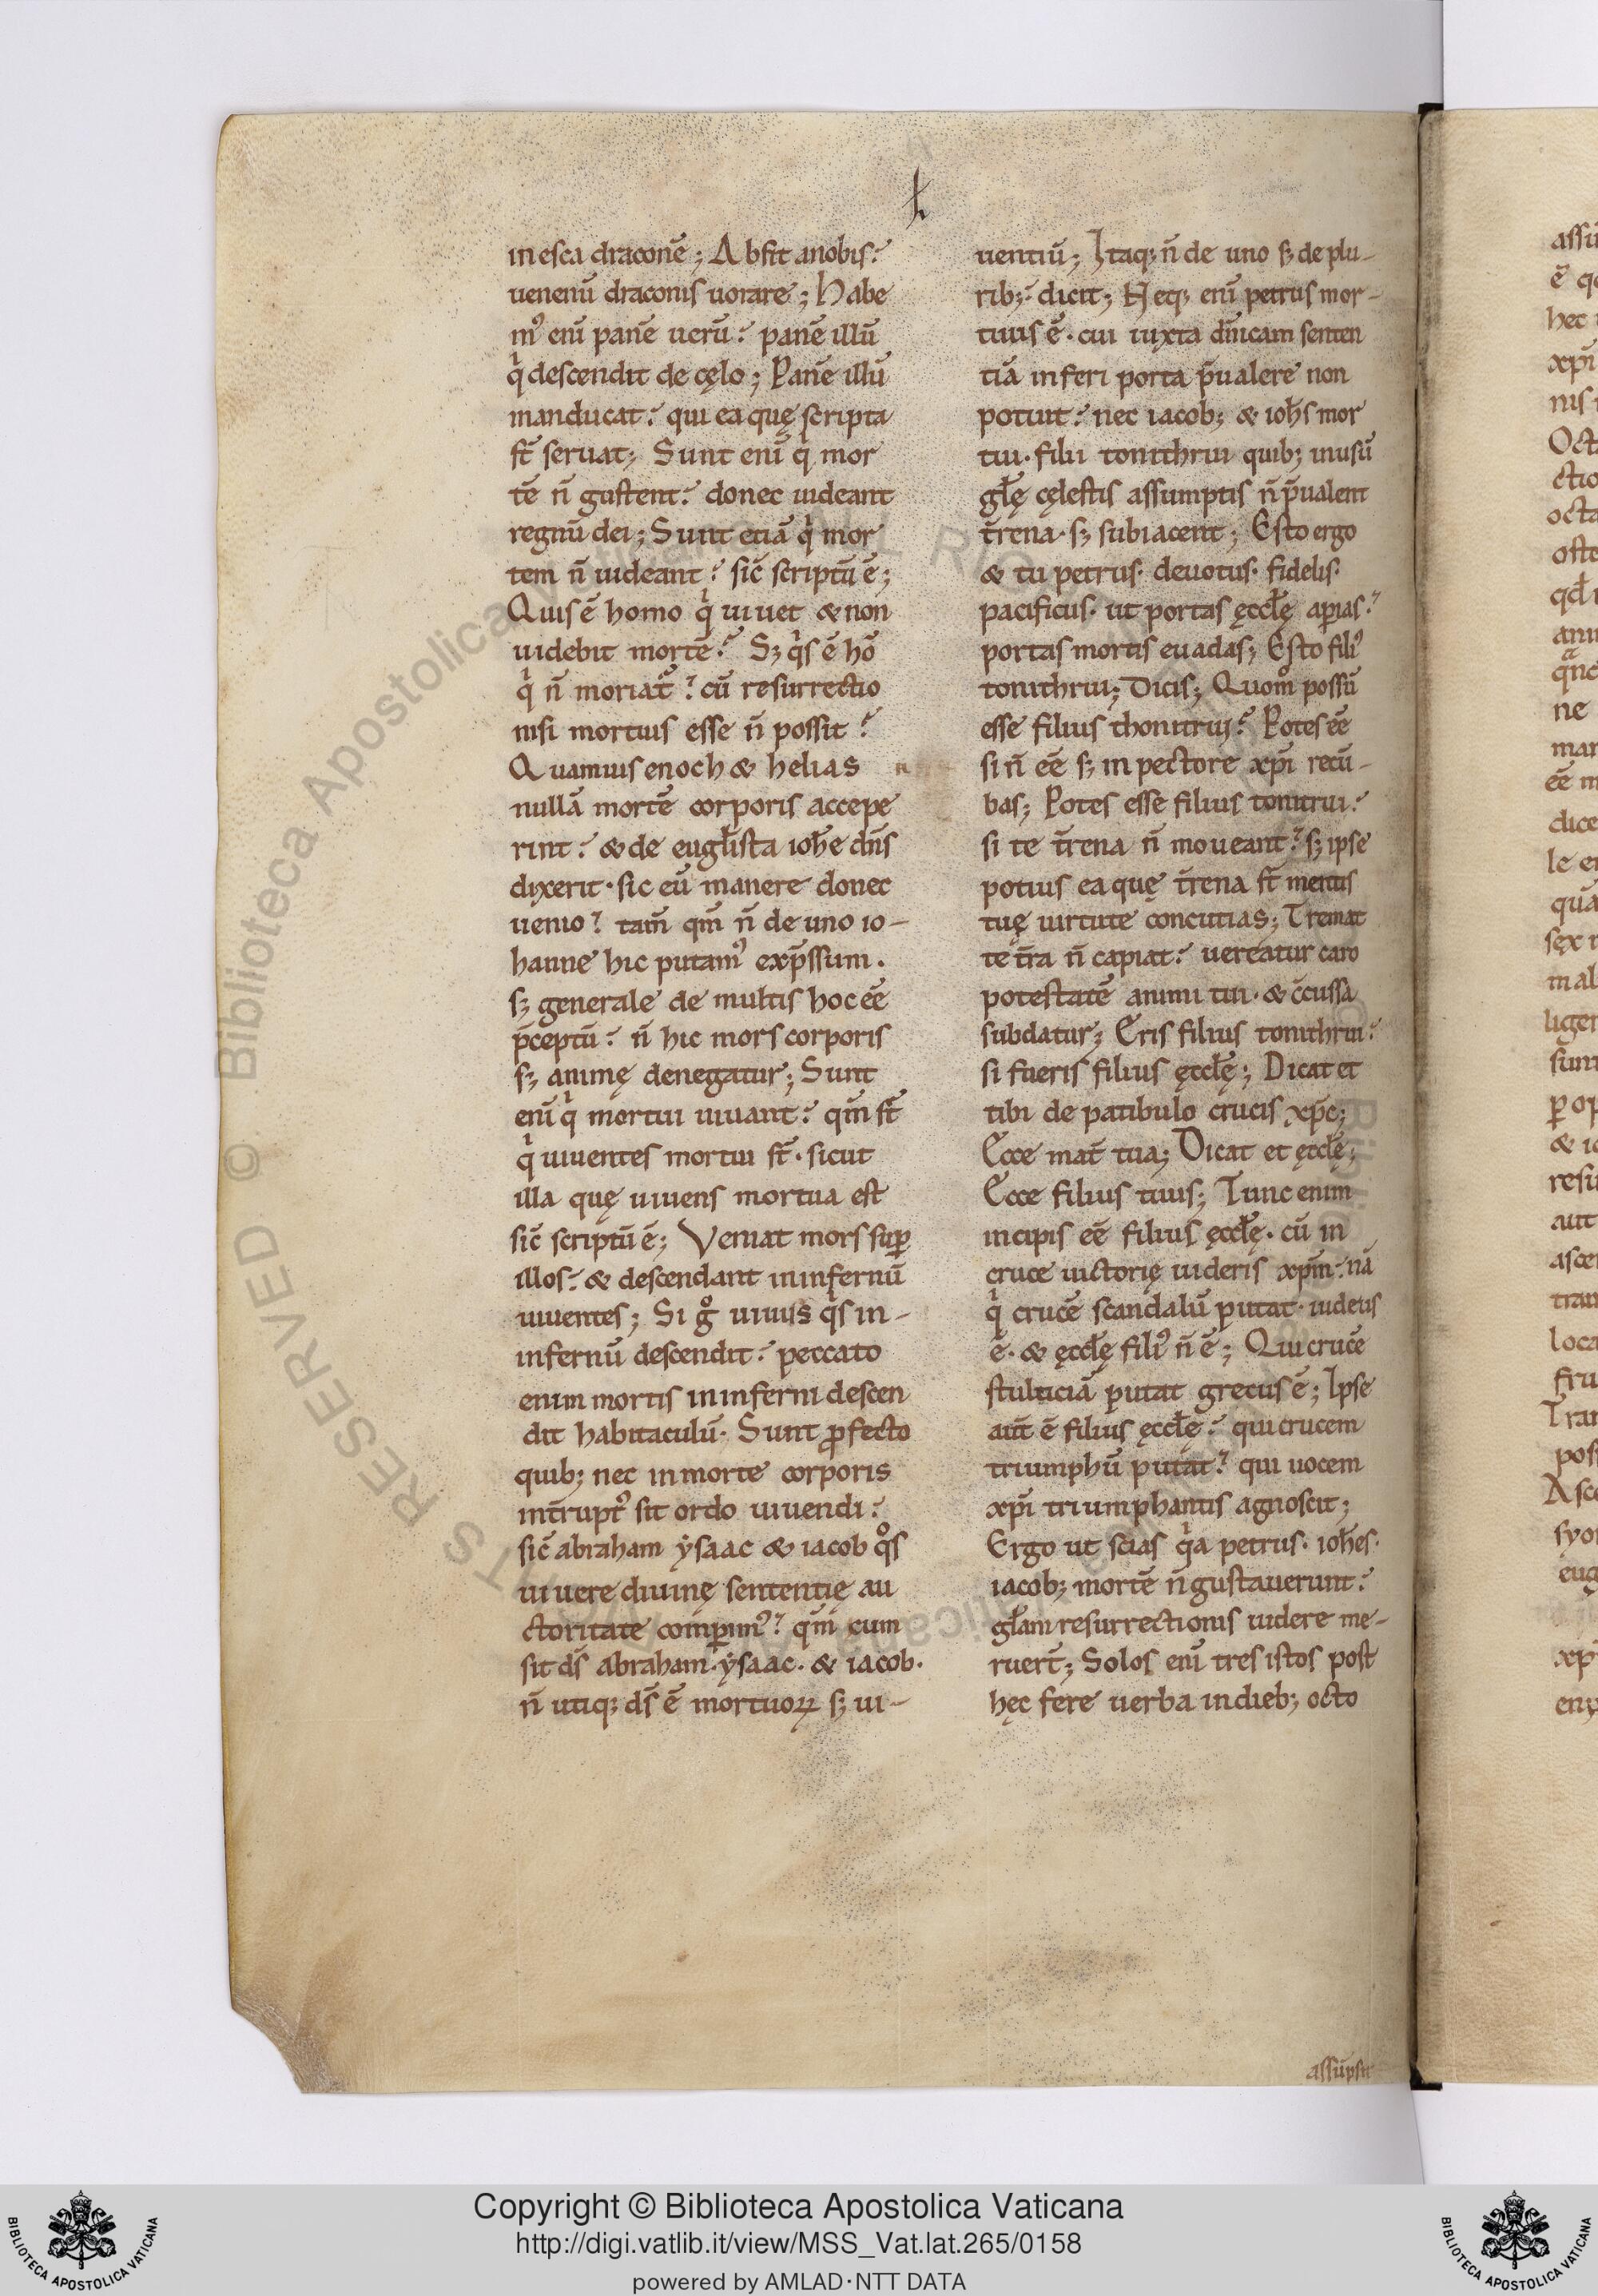 in esca draconē; Absit anobis?
uenenū draconis uorare; Habe
mꝰ eni̅ panē uerū? panē illū
qͥ descendit de cęlo; Panē illū
manducat? qui ea quę scripta
st̅ seruat; Sunt eni̅ qͥ mor
tē n̅ gustent? donec uideant
regnū dei; Sunt etiā qͥ mor
tem n̅ uideant? sic̅ scriptū ē;
Quis ē homo qͥ uiuet & non
uidebit mortē? Sꝫ qͥs ē ho̅
qͥ n̅ moriat᷑? cū resurrectio
nisi mortuis esse n̅ possit?
Quamuis enoch & helias
nullā mortē corporis accepe
rint? & de eugl̅ista ioh̅e dn̅s
dixerit· sic eū manere donec
uenio? tam̅ qm̅ n̅ de uno io-
hanne hic putamꝰ exp̅ssum.
sꝫ generale de multis hoc ēē
p̅ceptū? n̅ hic mors corporis
sꝫ animę denegatur; Sunt
eni̅ qͥ mortui uiuant? qm̅ st̅
qͥ uiuentes mortui st̅· sicut
illa quę uiuens mortua est
sic̅ scriptū ē; Veniat mors suꝑ
illos? & descendant in infernū
uiuentes; Si gͦ uiuus qͥs in-
infernū descendit? peccato
enim mortis in inferni descen
dit habitaculū· Sunt ꝓfecto
quibꝫ nec in morte corporis
int̅ruptꝰ sit ordo uiuendi?
sic̅ abraham ẏsaac & iacob qͦs
uiuere diuinę sententię au
ctoritate comꝑimꝰ? qm̅ cum
sit ds̅ abraham· ẏsaac· & iacob·
n̅ utiqꝫ ds̅ ē mortuoꝝ sꝫ ui-
uentiū; Itaqꝫ n̅ de uno sꝫ de plu-
ribꝫ? dicit; Neqꝫ eni̅ petrus mor-
tuus ē· cui iuxta dn̅icam senten
tiā inferi porta p̅ualere non
potuit? nec iacobꝫ & ioh̅s mor
tui· filii tonithrui quibꝫ inusū
gl̅ę cęlestis assumptis n̅ p̅ualent
t̅rena· sꝫ subiacent; Esto ergo
& tu petrus· deuotus· fidelis·
pacificus· ut portas ęccl̅ę aꝑias?
portas mortis euadas; Esto filiꝰ
tonithrui; Dicis; Quomͦ possū
esse filius thonitrui? Potes ēē
si n̅ ēē sꝫ in pectore xp̅i recū-
bas; Potes esse filius tonitrui?
si te t̅rena n̅ moueant? sꝫ ipse
potius ea quę t̅rena st̅ mentis
tuę uirtute concutias; Tremat
te t̅ra n̅ capiat? uereatur caro
potestatē animi tui· & c̅cussa
subdatur; Eris filius tonithrui?
si fueris filius ęccl̅ę; Dicat et
tibi de patibulo crucis xp̅c;
Ecce mat̅ tua; Dicat et ęccl̅ę;
Ecce filius tuus; Tunc enim
incipis ēē filius ęccl̅ę· cū in
cruce uictorię uideris xp̅m? nā
qͥ crucē scandalū putat· iudeus
ē· & ęccl̅ę filiꝰ n̅ ē; Qui crucē
stulticiā putat grecus ē; Ipse
aut̅ ē filius ęccl̅ę? qui crucem
triumphū putat? qui uocem
xp̅i triumphantis agnoscit;
Ergo ut scias qͥa petrus· ioh̅es·
iacobꝫ mortē n̅ gustauerunt?
gl̅am resurrectionis uidere me-
ruert̅; Solos eni̅ tres istos post
hęc fere uerba in diebꝫ octo
assūpsit
Copyright © Biblioteca Apostolica Vaticana
http://digi.vatlib.it/view/MSS_Vat.lat.265/0158
powered by AMLAD·NTT DATA